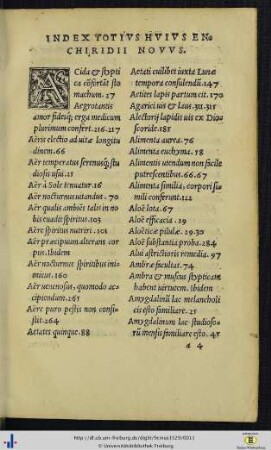 INDEX TOTIVS HVIVS EN-
CHIRIDII NOVVS.
ACida & styptica cōfortāt sto
machum. 27
Aegrotantis
amor fideiq; erga medicum
plurimum confert. 216.217
Aëris electio ad uitæ longitu
dinem. 66
Aër temperatus serenusq; stu
diosis usui. 21
Aër à Sole tenuatur. 16
Aër nocturnus uitandus. 70
Aër qualis ambit talis in no
bis euadit spiritus. 103
Aëre spiritus nutriri. 101
Aër præcipuum alterans cor
pus. ibidem
Aër nocturnus spiritibus ini
micus. 160
Aër uenenosus, quomodo ac
cipiendum. 265
Aëre puro pestis non consi
stit. 264
Aetates quinque. 88
Aetati cuilibet iuxta Lunæ
tempora consulendū. 147
Aetites lapis partum cit. 170
Agarici uis & laus. 311.315
Alectorij lapidis uis ex Dio
scoride. 185
Alimenta aurea. 76
Alimenta euchyma. 58
Alimentis utendum non facile
putrescentibus. 66.67
Alimenta similia, corpori si
mili conferunt. 124
Aloë lota. 67
Aloë efficacia. 29
Aloëticæ pilulæ. 29.30
Aloë substantia proba. 284
Alui astrictioris remedia. 97
Ambræ facultas. 74
Ambra & muscus stypticam
habent uirtutem. ibidem
Amygdalinū lac melancholi
cis esto familiare. 25
Amygdalinum lac studioso-
rū mensis familiare esto. 45
a 4
http://dl.ub.uni-freiburg.de/diglit/ficinus1529/0011
© Universitätsbibliothek Freiburg